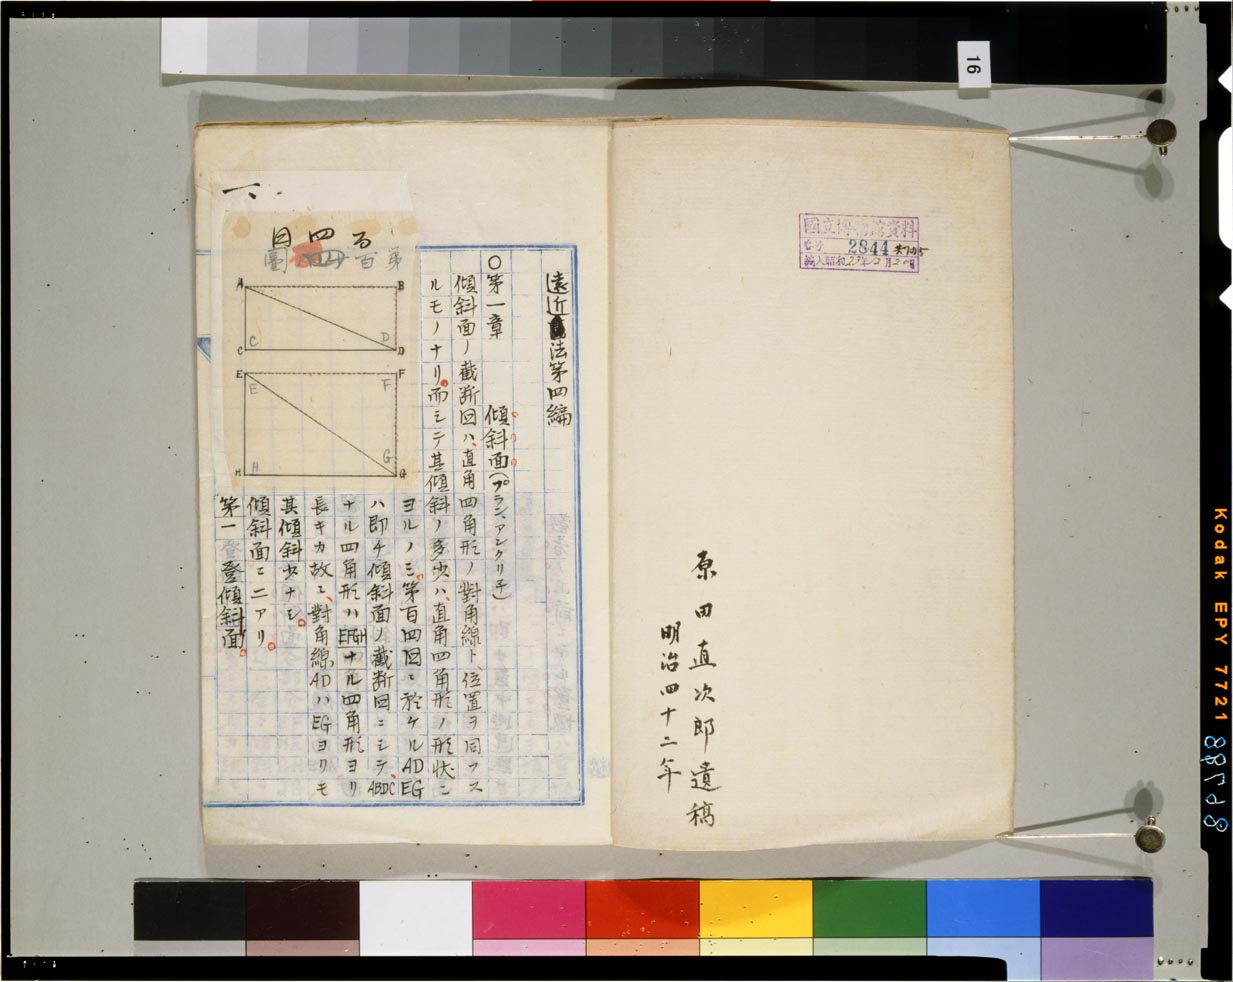 16
國立博物館資料
番号 2844
原田直次郎遺稿
明治四十二年
遠近法第四編
〇第一章 傾斜面(プラン、アンクリチ)
傾斜面ノ截断図ハ、直角四角形ノ對角線ト、位置ヲ同フス
ルモノナリ。而シテ其傾斜ノ多少ハ、直角四角形ノ形状ニ
ヨルノミ。第百四図ニ於ケルAD EG
ハ即チ傾斜面ノ截断図ニシテ、ABDC
ナル四角形ハEFGHナル四角形ヨリ
長キカ故ニ、對角線ADハEGヨリモ
其傾斜少ナシ。
傾斜面ニ二アリ。
第一 登傾斜面。
百四図
第百四圖
A B
C D
C D
E F
E F
H G
H G
Kodak EPY 7721